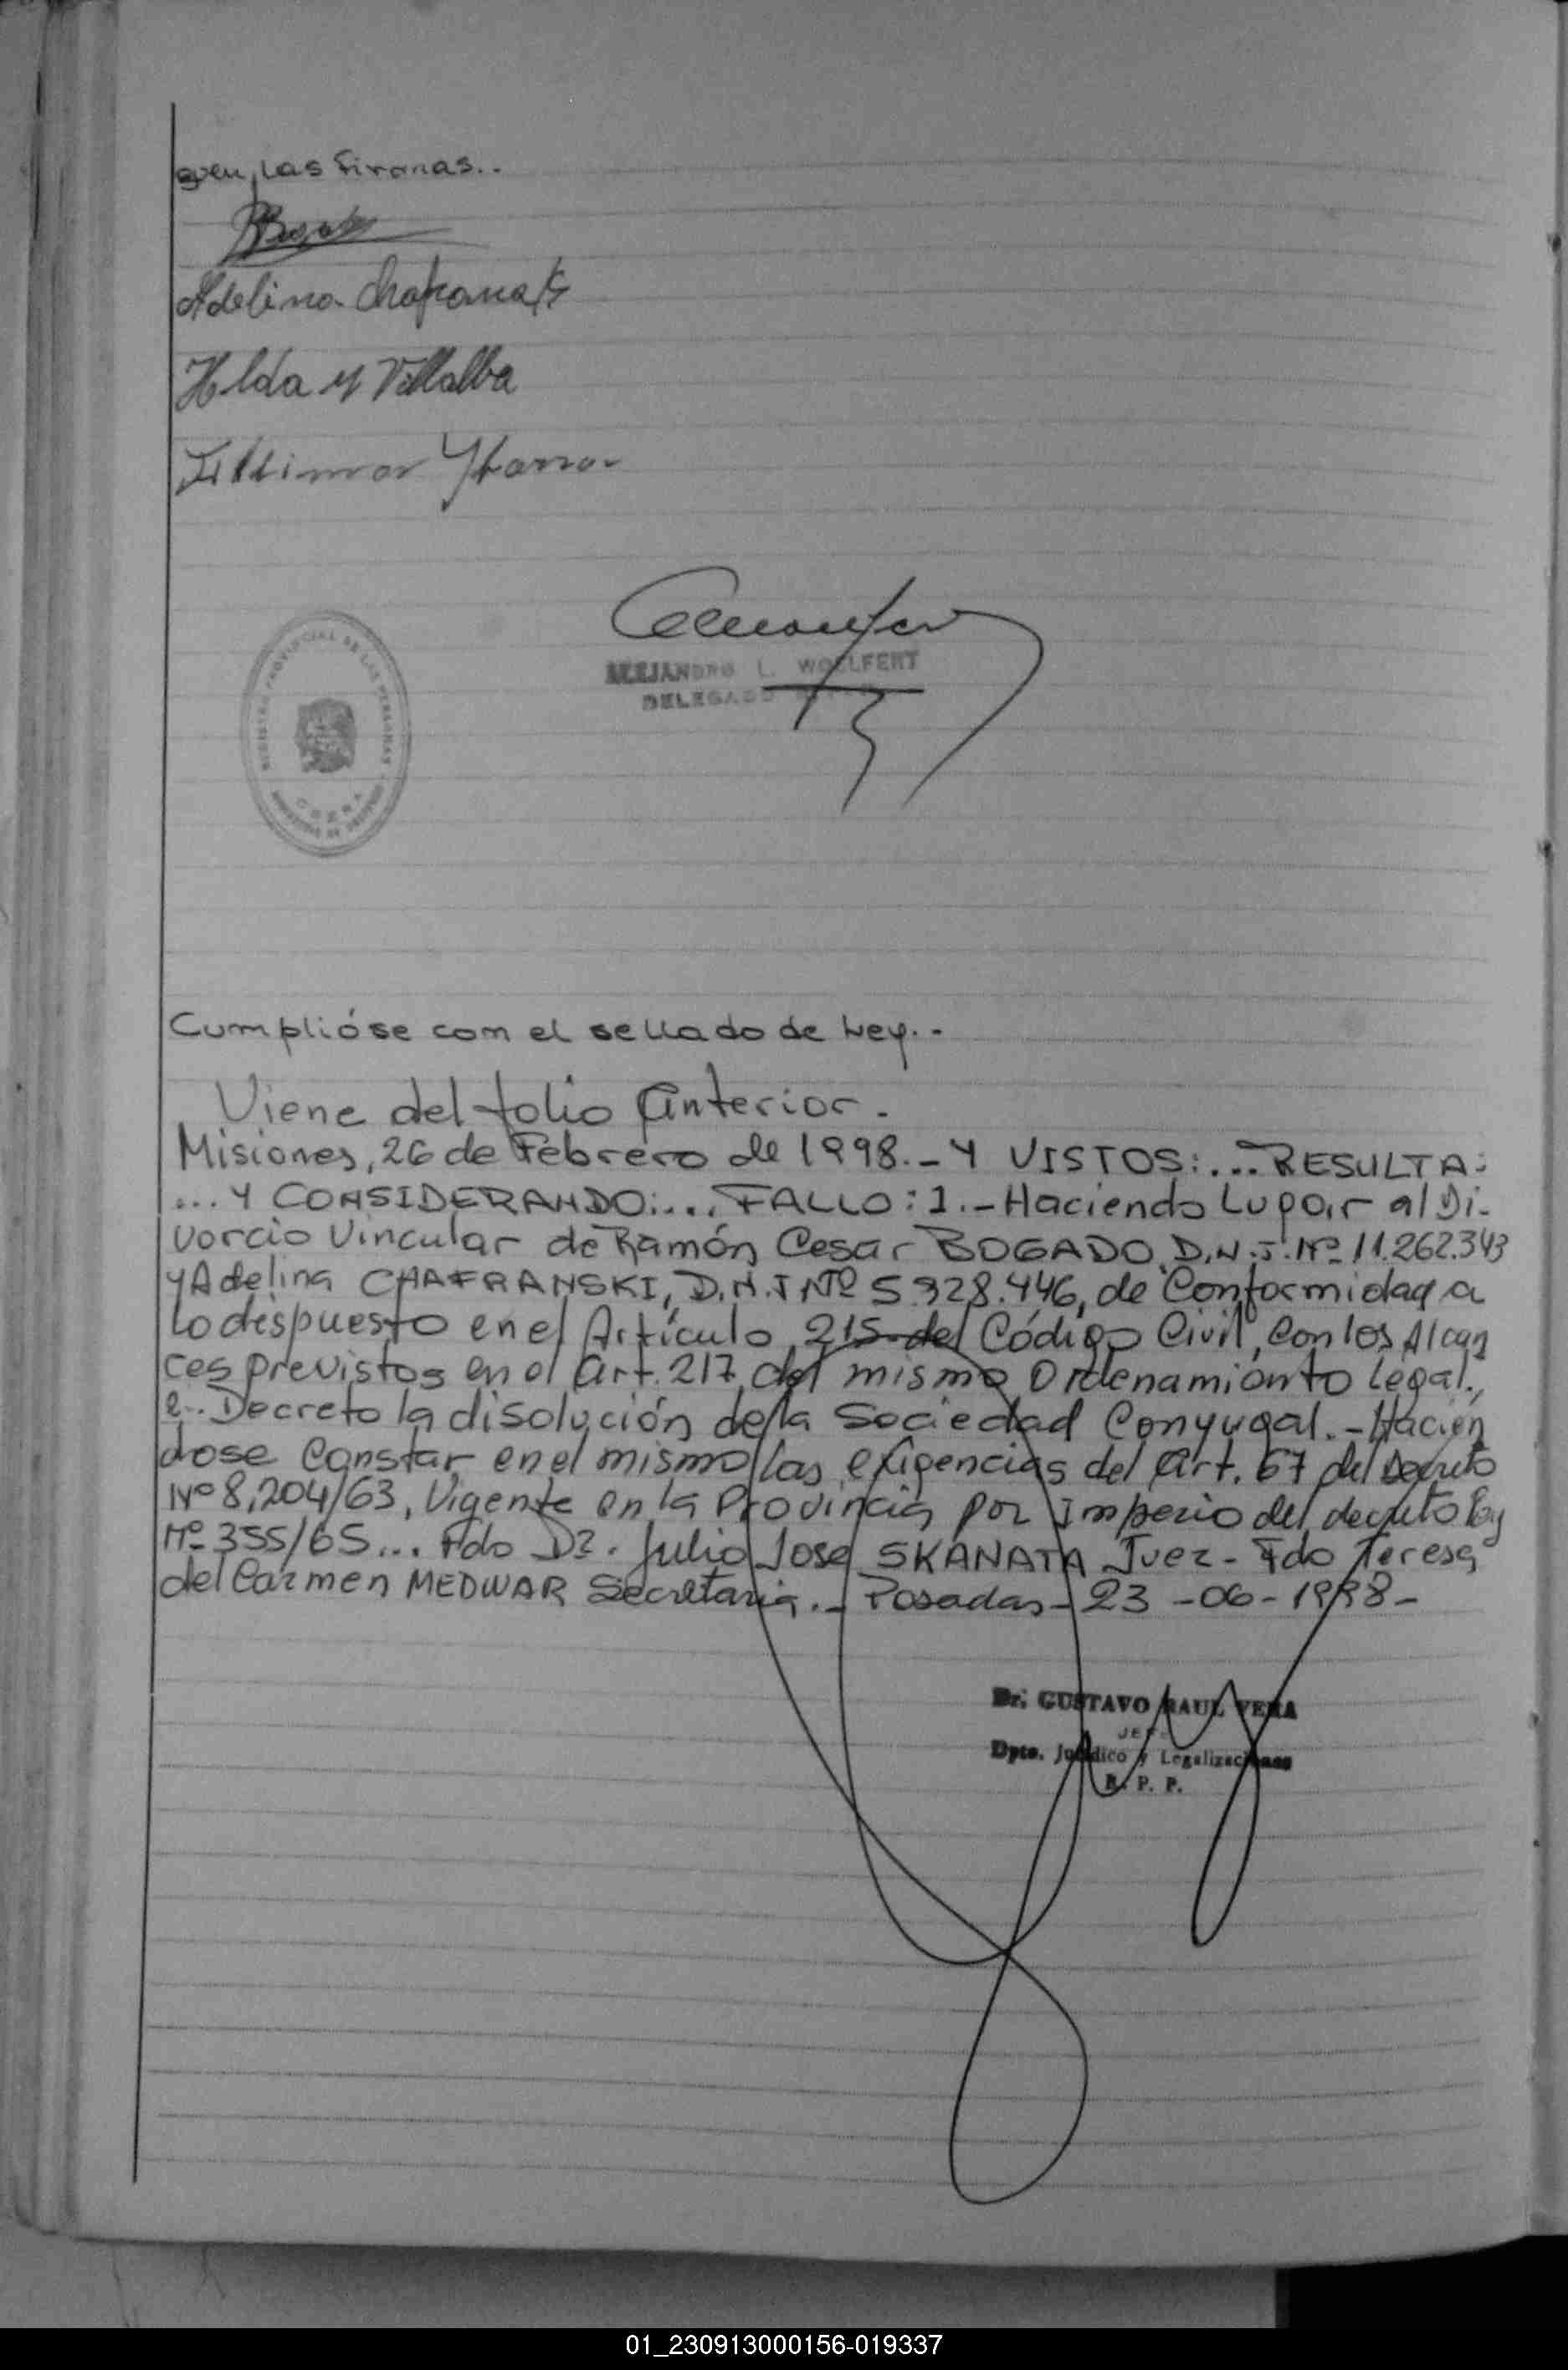 guen, las firmas..
Adelina Chafranski
Hlda y Villalba
Ybarra
REGISTRO PROVINCIAL DE LAS PERSONAS
OBERA
ALEJANDRO L. WOELFERT
DELEGADO
Cumplióse con el sellado de Ley..-
Viene del folio anterior.
Misiones, 26 de Febrero de 1998.- Y VISTOS:...RESULTA:
...Y CONSIDERANDO:.... FALLO: 1.- Haciendo Lugar al Di-
vorcio Vincular de Ramón Cesar BOGADO, D.N.I. Nº 11.262.343
y Adelina CHAFRANSKI, D.N.I Nº 5.328.446, de Conformidad a
lo dispuesto en el Artículo 215 del Código Civil, con los Alcan
ces previstos en el art. 217 del mismo Ordenamiento Legal.,
2.. Decreto la disolución de la Sociedad Conyugal.- Hacién
dose Constar en el mismo las exigencias del Art. 67 del Decreto
Nº 8.204/63, Vigente en la Provincia por Imperio del decreto Ley
Nº 355/65... Fdo Dr. Julio Jose SKANATA Juez - Fdo Teresa
del Carmen MEDWAR Secretaria.- Posadas - 23 -06- 1998-
Dr. GUSTAVO RAUL VERA
JEFE
Dpto. Jurídico y Legalizaciones
R. P. P.
01_230913000156-019337